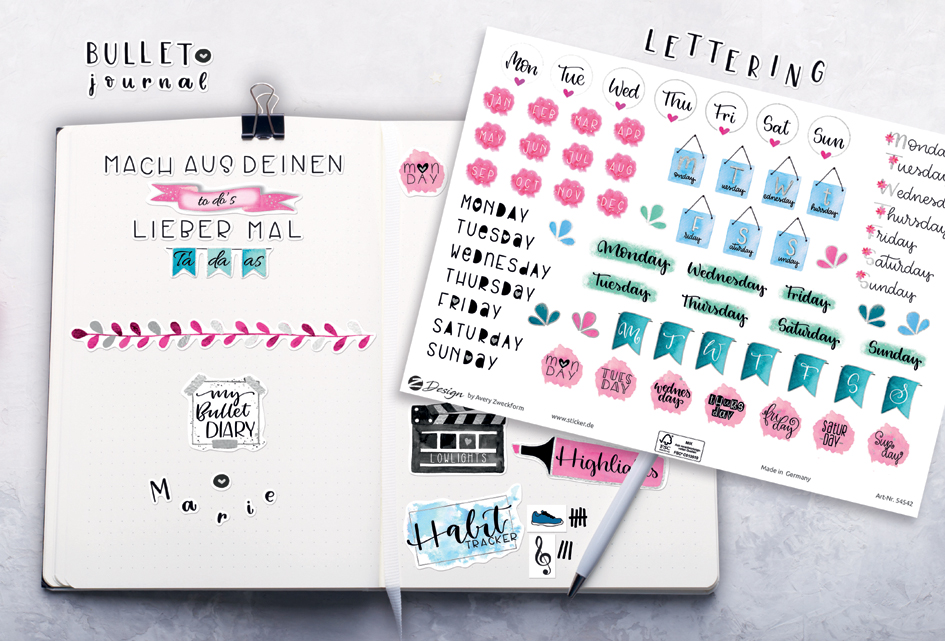 BULLET
journal
LETTERING
MACH AUS DEINEN
to do's
LIEBER MAL
Ta da as
my
Bullet
DIARY
Marie
MON
DAY
LOWLIGHTS
Highlights
Habit
TRACKER
Mon Tue Wed Thu Fri Sat Sun
JAN FEB MAR APR
MAY JUN JUL AUG
SEP OCT NOV DEC
Monday Tuesday Wednesday Thursday
Friday Saturday Sunday
MONDAY
TUESDAY
WEDNESDAY
THURSDAY
FRIDAY
SATURDAY
SUNDAY
Monday Wednesday Friday
Tuesday Thursday Saturday Sunday
M T W T F S S
MON
DAY
TUES
DAY
wednes
day
THURS
day
fri
day
SATUR
DAY
Sun
day
Monda
Tuesda
Wednesd
Thursda
Friday
Saturday
Sunday
Z Design by Avery Zweckform
www.sticker.de
FSC
MIX
Made in Germany
Art-Nr. 54542